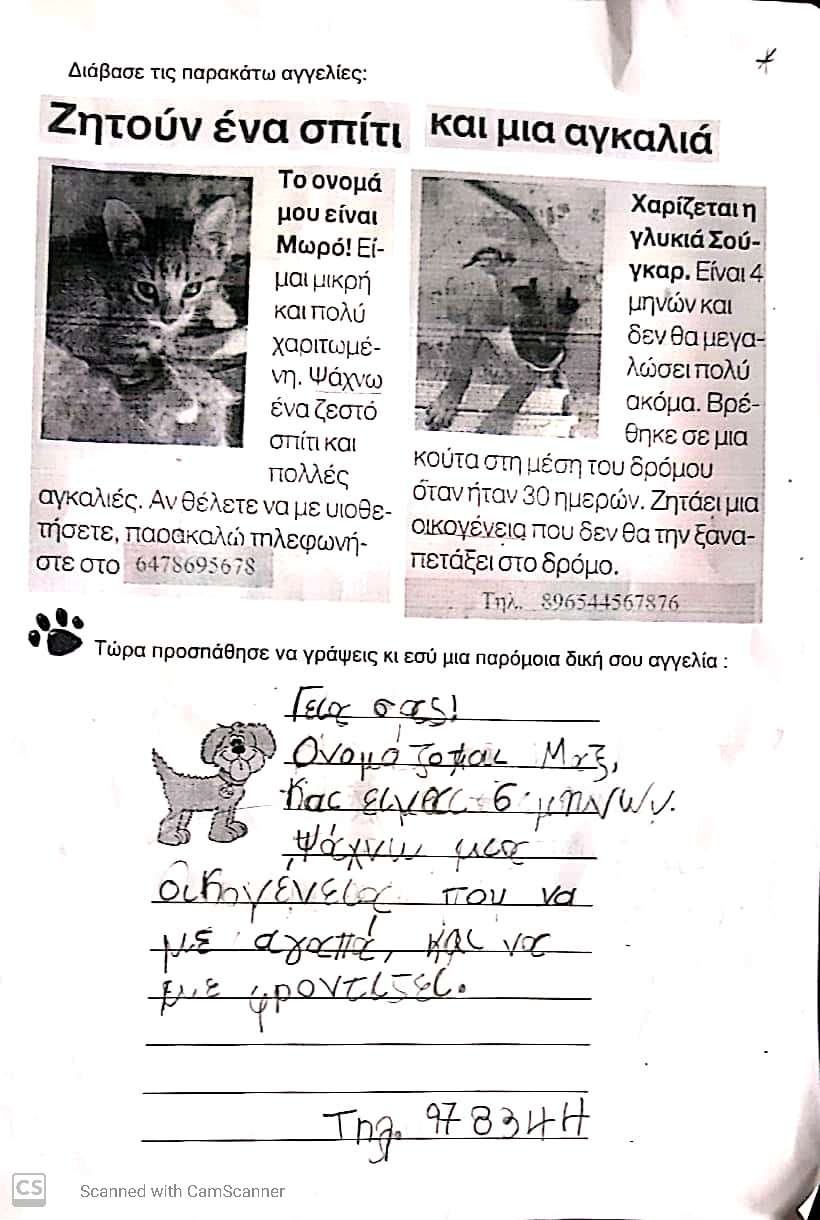 Διάβασε τις παρακάτω αγγελίες:
Ζητούν ένα σπίτι και μια αγκαλιά
Το ονομά
μου είναι
Μωρό! Εί-
μαι μικρή
και πολύ
χαριτωμέ-
νη. Ψάχνω
ένα ζεστό
σπίτι και
πολλές
αγκαλιές. Αν θέλετε να με υιοθε-
τήσετε, παρακαλώ τηλεφωνή-
στε στο 6478695678
Χαρίζεται η
γλυκιά Σού-
γκαρ. Είναι 4
μηνών και
δεν θα μεγα-
λώσει πολύ
ακόμα. Βρέ-
θηκε σε μια
κούτα στη μέση του δρόμου
όταν ήταν 30 ημερών. Ζητάει μια
οικογένεια που δεν θα την ξανα-
πετάξει στο δρόμο.
Τηλ. 896544567876
Τώρα προσπάθησε να γράψεις κι εσύ μια παρόμοια δική σου αγγελία :
Γεια σας!
Ονομάζομαι Μαξ,
και είμαι 6 μηνών.
Ψάχνω μια
οικογένεια που να
με αγαπά, και να
με φροντίζει.
Τηλ. 978344
CS Scanned with CamScanner